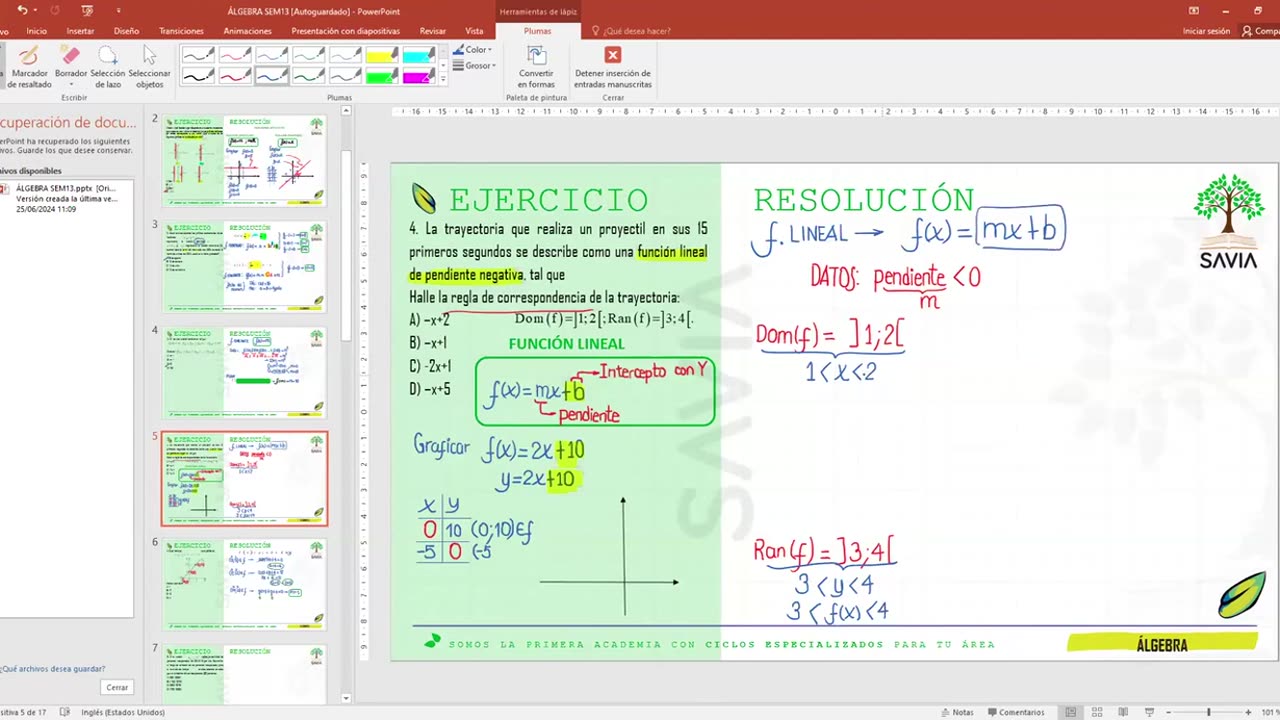 ÁLGEBRA SEM13 [Autoguardado] - PowerPoint
Herramientas de lápiz
Inicio Insertar Diseño Transiciones Animaciones Presentación con diapositivas Revisar Vista Plumas ¿Qué desea hacer? Iniciar sesión
Marcador de resaltado
Borrador
Selección de lazo
Seleccionar objetos
Color
Grosor
Convertir en formas
Detener inserción de entradas manuscritas
Escribir
Plumas
Paleta de pintura
Cerrar
cuperación de docu...
erPoint ha recuperado los siguientes
ivos. Guarde los que desee conservar.
hivos disponibles
ÁLGEBRA SEM13.pptx [Ori...
Versión creada la última ve...
25/06/2024 11:09
¿Qué archivos desea guardar?
Cerrar
2
3
4
5
6
7
EJERCICIO
4. La trayectoria que realiza un proyectil en sus 15
primeros segundos se describe como una función lineal
de pendiente negativa, tal que
Halle la regla de correspondencia de la trayectoria:
A) –x+2
Dom(f)=]1;2[;Ran(f)=]3;4[.
B) –x+1
FUNCIÓN LINEAL
C) -2x+1
D) –x+5
f(x)=mx+b
Intercepto con Y
pendiente
Graficar f(x)=2x+10
y=2x+10
x y
0 10 (0;10)∈f
-5 0 (-5
RESOLUCIÓN
f. LINEAL → f(x)=mx+b
DATOS: pendiente <0
m
Dom(f) = ]1;2[
1<x<2
Ran(f) = ]3;4[
3<y<4
3<f(x)<4
SAVIA
SOMOS LA PRIMERA ACADEMIA CON CICLOS ESPECIALIZADOS PARA TU ÁREA
ÁLGEBRA
sitiva 5 de 17 Inglés (Estados Unidos) Notas Comentarios 101 %